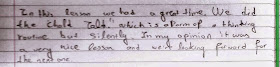 In this lesson we had a great time. We did
the "Chalk Talk" which is a form of a thinking
routine but silently. In my opinion it was
a very nice lesson and we're looking forward for
the next one.